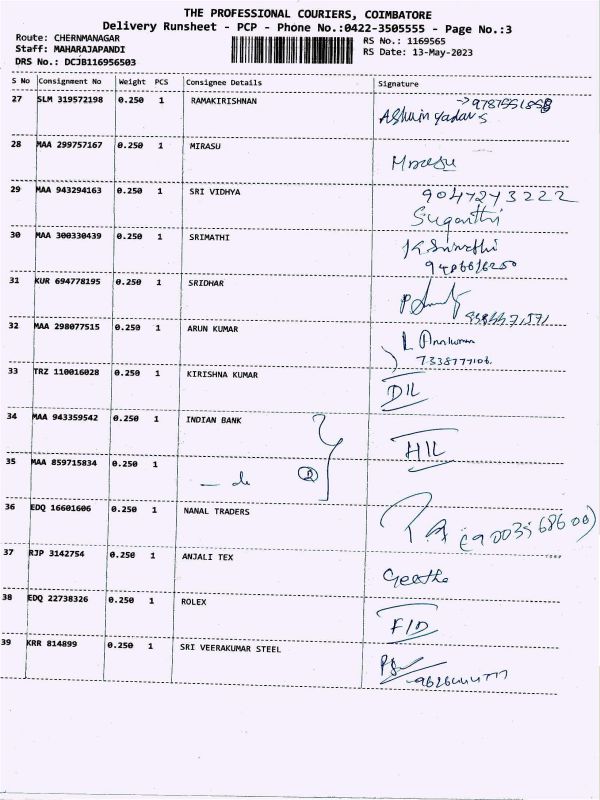 THE PROFESSIONAL COURIERS, COIMBATORE
Delivery Runsheet - PCP - Phone No.:0422-3505555 - Page No.:3
Route: CHERNMANAGAR
Staff: MAHARAJAPANDI
DRS No.: DCJB116956503
RS No.: 1169565
RS Date: 13-May-2023
S No Consignment No Weight PCS Consignee Details Signature
27 SLM 319572198 0.250 1 RAMAKIRISHNAN
Ashwin yadav S
28 MAA 299757167 0.250 1 MIRASU
29 MAA 943294163 0.250 1 SRI VIDHYA 9047243222
Suganthi
30 MAA 300330439 0.250 1 SRIMATHI
31 KUR 694778195 0.250 1 SRIDHAR
32 MAA 298077515 0.250 1 ARUN KUMAR
7338777106
33 TRZ 110016028 0.250 1 KIRISHNA KUMAR DIL
34 MAA 943359542 0.250 1 INDIAN BANK HIL
35 MAA 859715834 0.250 1 — do ②
36 EDQ 16601606 0.250 1 NANAL TRADERS (9003568600)
37 RJP 3142754 0.250 1 ANJALI TEX Geetha
38 EDQ 22738326 0.250 1 ROLEX F/D
39 KRR 814899 0.250 1 SRI VEERAKUMAR STEEL